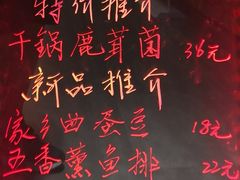 特价推介
干锅鹿茸菌 36元
新品推介
家乡曲蚕豆 18元
五香薰鱼排 22元